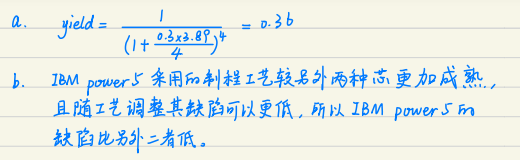 a. yield = 1/(1+ 0.3×3.89/4)^4 = 0.36
b. IBM power5 采用的制程工艺较另外两种芯更加成熟,
且随工艺调整其缺陷可以更低, 所以 IBM power5 的
缺陷比另外二者低。